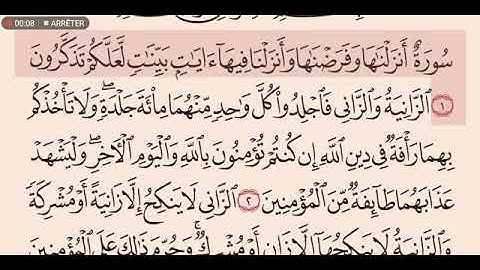 00:08 ■ ARRÊTER
سُورَةٌ أَنزَلْنَٰهَا وَفَرَضْنَٰهَا وَأَنزَلْنَا فِيهَآ ءَايَٰتِۭ بَيِّنَٰتٖ لَّعَلَّكُمْ تَذَّكَّرُونَ
١ ٱلزَّانِيَةُ وَٱلزَّانِي فَٱجْلِدُوا۟ كُلَّ وَٰحِدٖ مِّنْهُمَا مِا۟ئَةَ جَلْدَةٖۖ وَلَا تَأْخُذْكُم
بِهِمَا رَأْفَةٌ فِي دِينِ ٱللَّهِ إِن كُنتُمْ تُؤْمِنُونَ بِٱللَّهِ وَٱلْيَوْمِ ٱلْأٓخِرِۖ وَلْيَشْهَدْ
عَذَابَهُمَا طَآئِفَةٌ مِّنَ ٱلْمُؤْمِنِينَ ٢ ٱلزَّانِي لَا يَنكِحُ إِلَّا زَانِيَةً أَوْ مُشْرِكَةٗ
وَٱلزَّانِيَةُ لَا يَنكِحُهَآ إِلَّا زَانٍ أَوْ مُشْرِكٌۚ وَحُرِّمَ ذَٰلِكَ عَلَى ٱلْمُؤْمِنِينَ